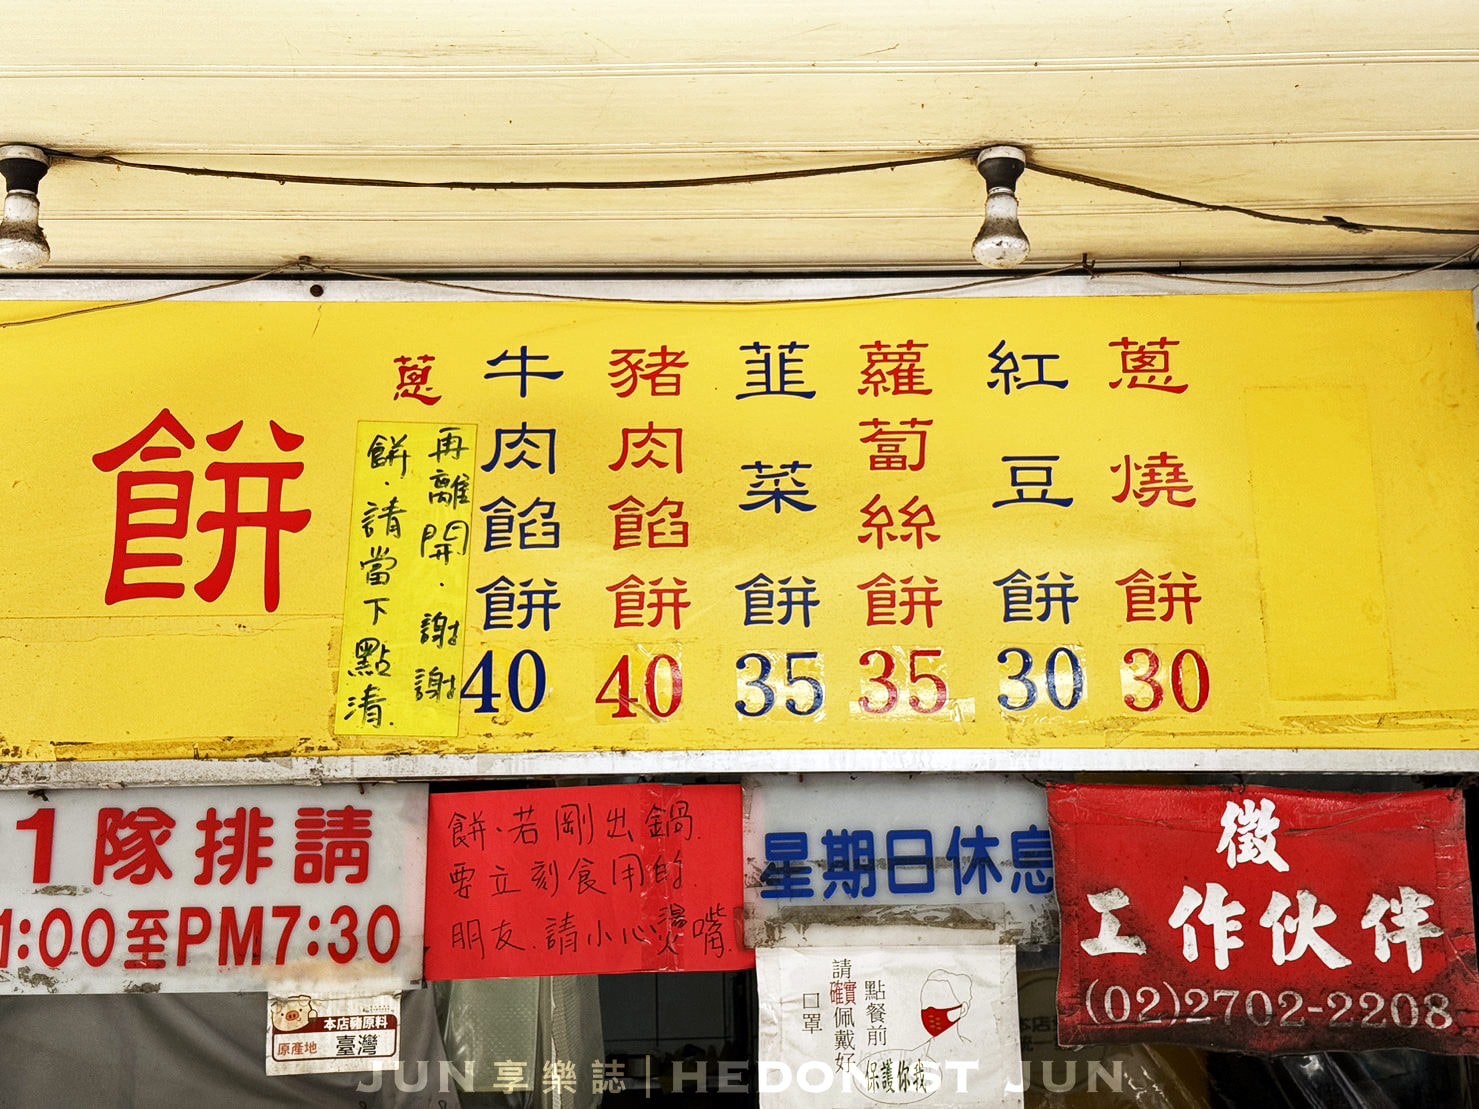 蔥燒餅 30
紅豆餅 30
蘿蔔絲餅 35
韮菜餅 35
豬肉餡餅 40
牛肉餡餅 40
蔥
餅
再離開.謝謝
餅.請當下點清.
請排隊1
1:00至PM7:30
餅.若剛出鍋.
要立刻食用的.
朋友.請小心燙嘴.
星期日休息
徵
工作伙伴
(02)2702-2208
本店豬原料
原產地 臺灣
點餐前
請確實佩戴好
口罩
保護你我
JUN 享樂誌 | HEDONIST JUN